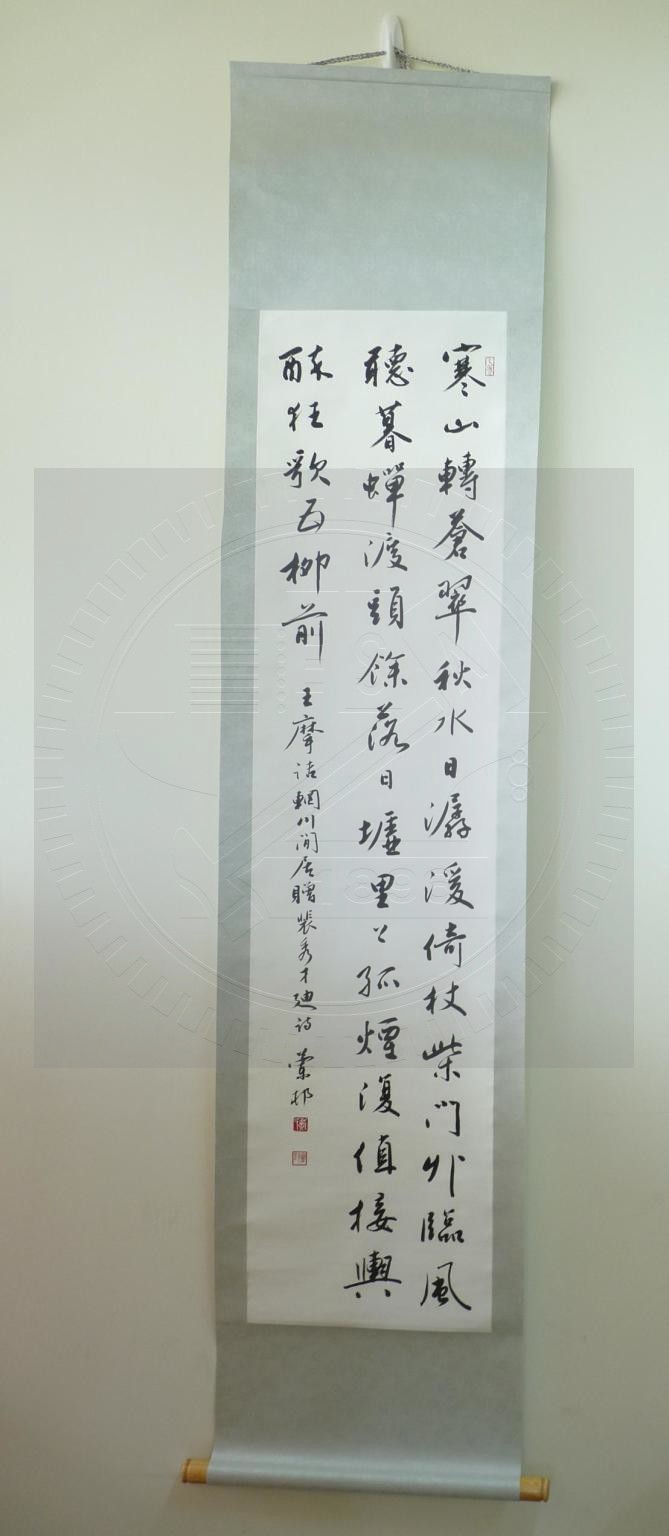 寒山轉蒼翠秋水日潺湲倚杖柴門外臨風
聽暮蟬渡頭餘落日墟里上孤煙復值接輿
醉狂歌五柳前
王摩詰輞川閒居贈裴秀才迪詩